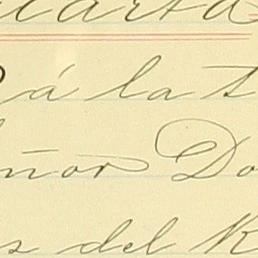 carta
á la t
eñor Do
s del K